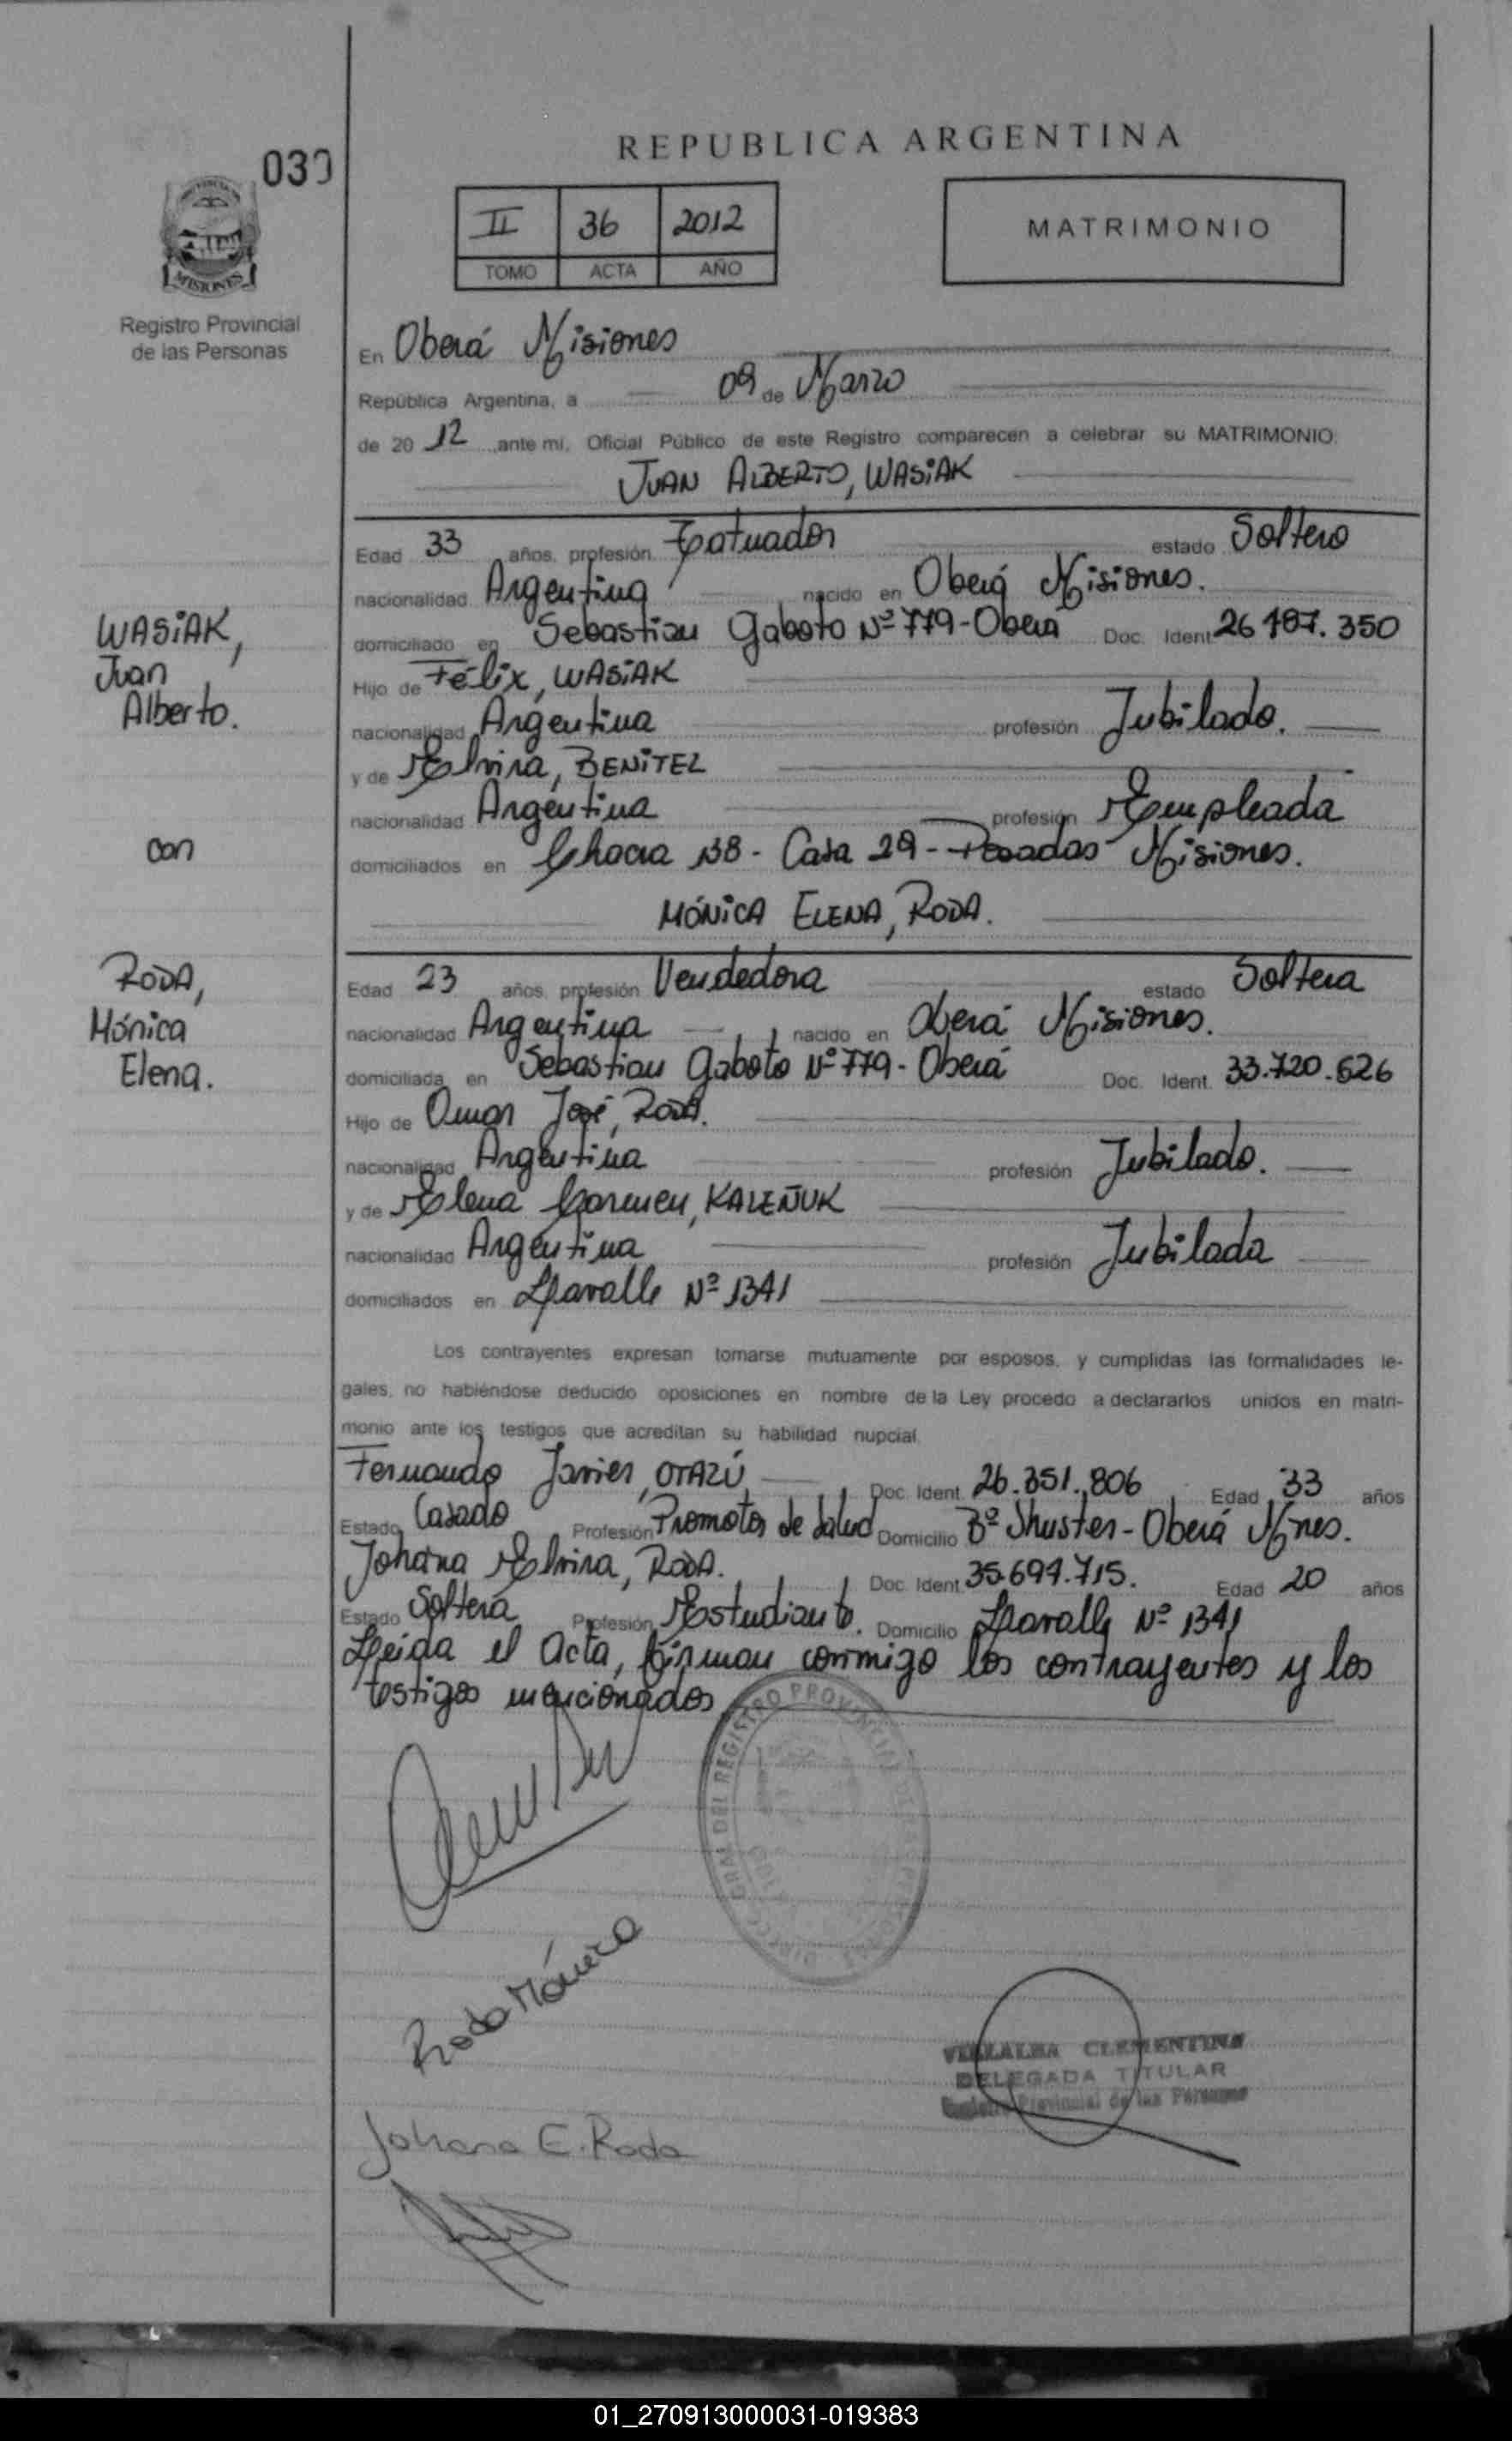 REPUBLICA ARGENTINA
II 36 2012
TOMO ACTA AÑO
MATRIMONIO
MISIONES
Registro Provincial
de las Personas
En Oberá Misiones
República Argentina, a 09 de Marzo
de 20 12 ,ante mi, Oficial Público de este Registro comparecen a celebrar su MATRIMONIO:
JUAN ALBERTO, WASiAK
Edad 33 años, profesión Tatuador estado Soltero
nacionalidad Argentina nacido en Oberá Misiones.
domiciliado en Sebastian Gaboto Nº 779-Oberá Doc. Ident. 26.187.350
Hijo de Félix, WASiAK
nacionalidad Argentina profesión Jubilado.
y de Elvira, BENiTEZ
nacionalidad Argentina profesión Empleada
domiciliados en Chacra 138 - Casa 29 - Posadas Misiones.
MÓNiCA ELENA, RODA.
Edad 23 años, profesión Vendedora estado Soltera
nacionalidad Argentina nacido en Oberá Misiones.
domiciliada en Sebastian Gaboto Nº 779 - Oberá Doc. Ident. 33.720.626
Hijo de Omar José, RODA.
nacionalidad Argentina profesión Jubilado.
y de Elena Carmen, KALEÑUK
nacionalidad Argentina profesión Jubilada
domiciliados en Lavalle Nº 1341
Los contrayentes expresan tomarse mutuamente por esposos, y cumplidas las formalidades le-
gales, no habiéndose deducido oposiciones en nombre de la Ley procedo a declararlos unidos en matri-
monio ante los testigos que acreditan su habilidad nupcial.
Fernando Javier, OTAZÚ Doc. Ident. 26.351.806 Edad 33 años
Estado Casado Profesión Promotor de Salud Domicilio Bº Shuster - Oberá Mnes.
Johana Elvira, RODA. Doc. Ident. 35.697.715. Edad 20 años
Estado Soltera Profesión Estudiante. Domicilio Lavalle Nº 1341
Leida el Acta, firman conmigo los contrayentes y los
testigos mencionados
WASiAK,
Juan
Alberto.
con
RODA,
Mónica
Elena.
Roda Mónica
Johana E. Roda
VILLALBA CLEMENTINA
DELEGADA TITULAR
Registro Provincial de las Personas
01_270913000031-019383